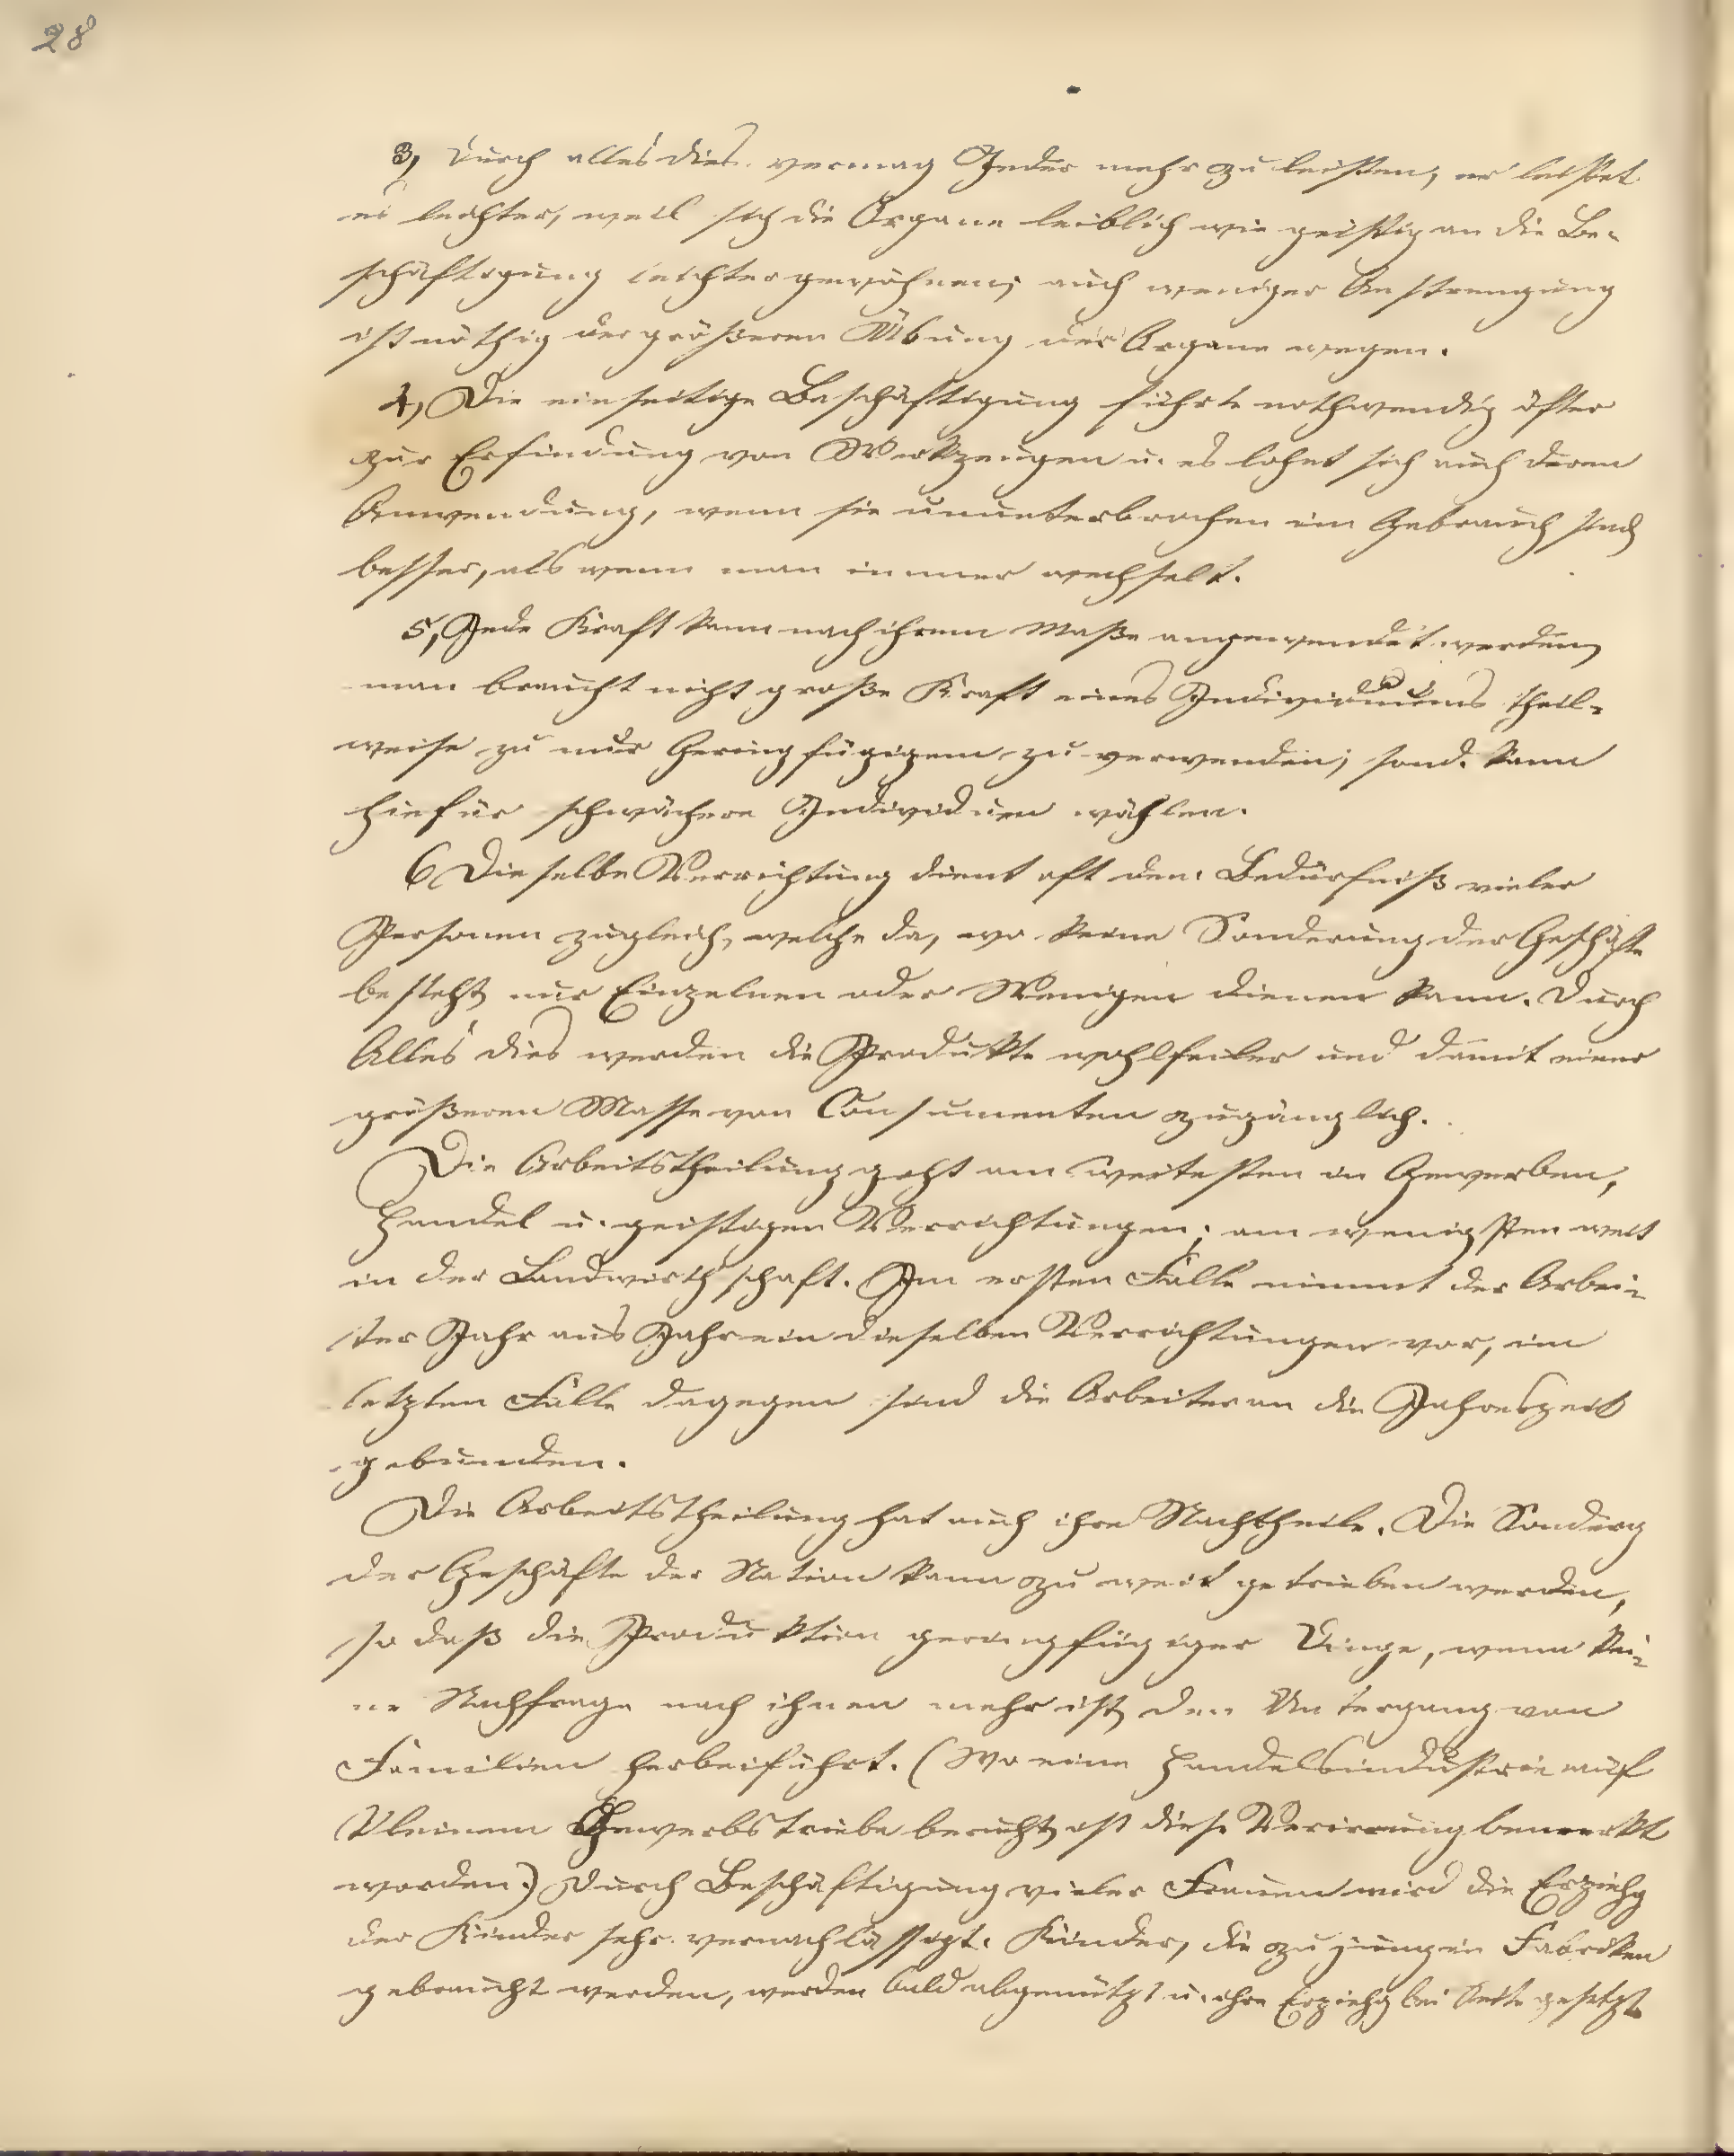 28
3, Durch alles dies vermag Jeder mehr zu leisten, er leistet
es leichter, weil sich die Organe leiblich wie geistig an die Be-
schäftigung leichter gewöhnen; auch weniger Anstrengung
ist nöthig der größeren Übung der Organe wegen.
4, Die einseitige Beschäftigung führte nothwendig öfter
zur Erfindung von Werkzeugen u. es lohnt sich auch deren
Anwendung, wenn sie ununterbrochen im Gebrauch sind
besser, als wenn man immer wechselt.
5, Jede Kraft kann nach ihrem Maße angewendet werden,
man braucht nicht große Kraft eines Individuums theil-
weise zu nur Geringfügigem zu verwenden; sond. kann
hiefür schwächere Individuen wählen.
6 Dieselbe Verrichtung dient oft dem Bedürfniß vieler
Personen zugleich, welche da, wo keine Sonderung der Geschäfte
besteht, nur Einzelnen oder Wenigen dienen kann. Durch
Alles dies werden die Produkte wohlfeiler und damit einer
größeren Masse von Consumenten zugänglich.
Die Arbeitstheilung geht am weitesten in Gewerben,
Handel u. geistigen Verrichtungen; am wenigsten weit
in der Landwirthschaft. Im ersten Falle nimmt der Arbei-
ter Jahr aus Jahr ein dieselben Verrichtungen vor, im
letzten Falle dagegen sind die Arbeiter an die Jahreszeit
gebunden.
Die Arbeitstheilung hat auch ihre Nachtheile. Die Sonderg
der Geschäfte der Nation kann zu weit getrieben werden,
so daß die Produktion geringfügiger Dinge, wenn kei-
ne Nachfrage nach ihnen mehr ist, den Untergang von
Familien herbeiführt. (Wo eine Handelsindustrie auf
kleinem Gewerbstriebe beruht, ist diese Verirrung bemerkt
worden.) Durch Beschäftigung vieler Frauen wird die Erziehg
der Kinder sehr vernachlässigt. Kinder, die zu jung in Fabriken
gebraucht werden, werden bald abgenützt u. ihre Erziehg bei Seite gesetzt